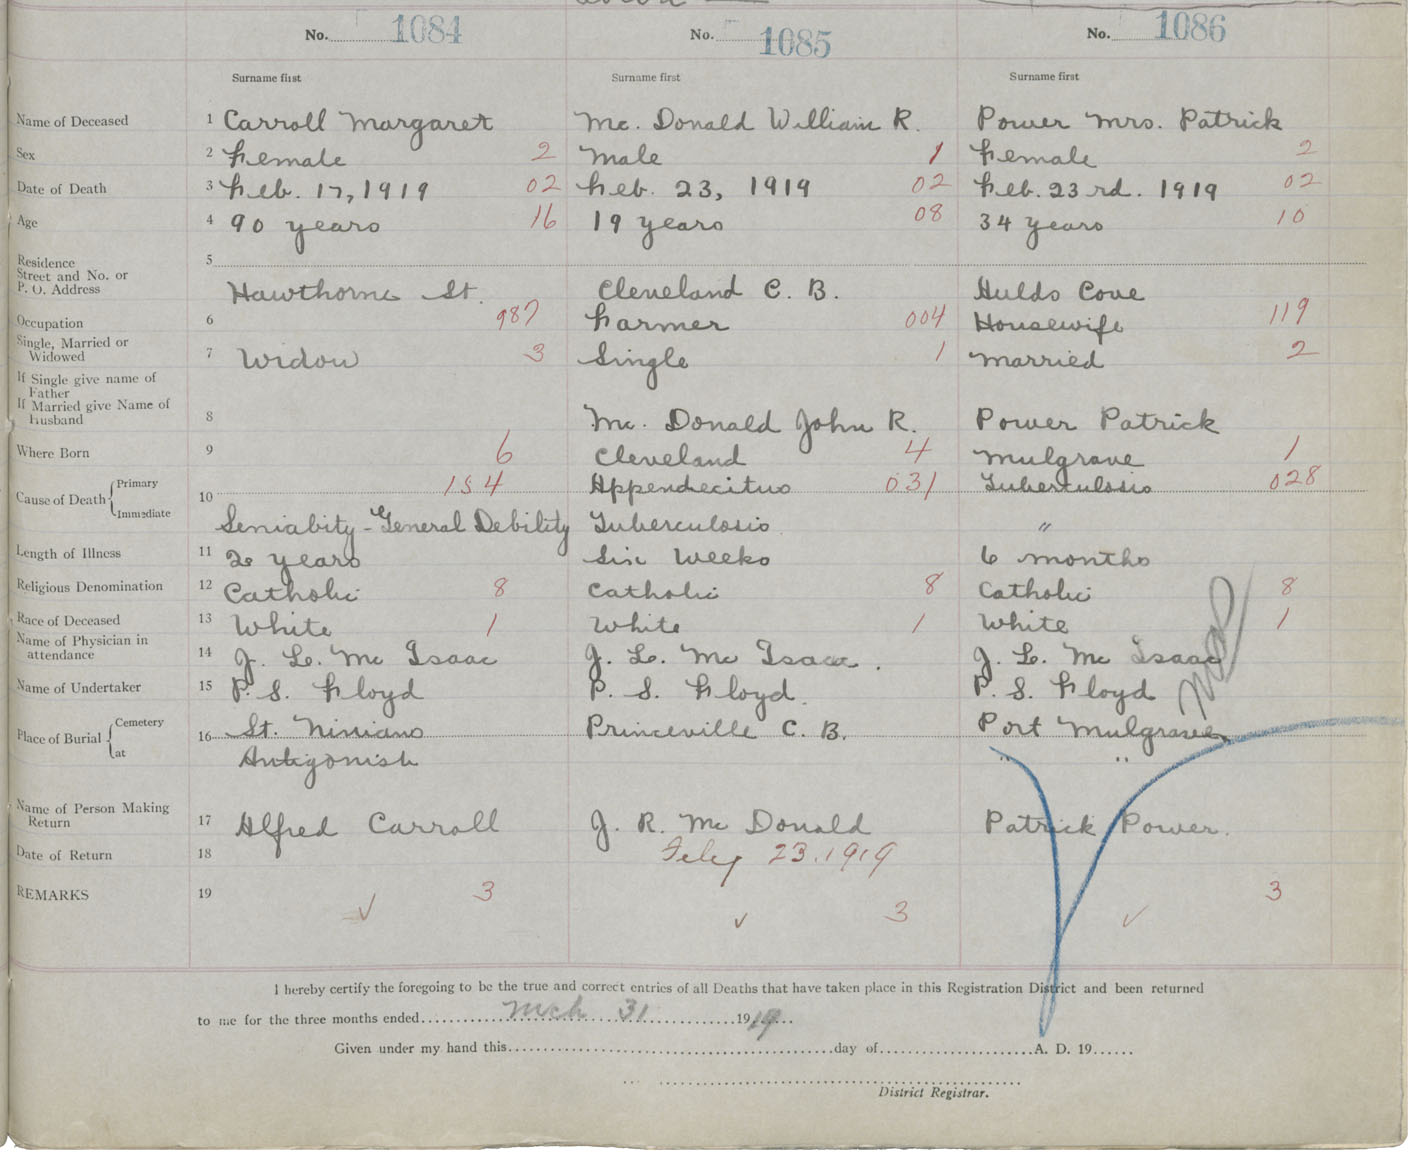 No. 1084 No. 1085 No. 1086
Surname first Surname first Surname first
Name of Deceased 1 Carroll Margaret Mc. Donald William R. Power Mrs. Patrick
Sex 2 Female 2 Male 1 Female 2
Date of Death 3 Feb. 17, 1919 02 Feb. 23, 1919 02 Feb. 23rd. 1919 02
Age 4 90 years 16 19 years 08 34 years 10
Residence 5
Street and No. or
P. O. Address Hawthorne St. Cleveland C. B. Aulds Cove
Occupation 6 987 Farmer 004 Housewife 119
Single, Married or
Widowed 7 Widow 3 Single 1 Married 2
If Single give name of
Father
If Married give Name of
Husband 8 Mc. Donald John R. Power Patrick
Where Born 9 6 Cleveland 4 Mulgrave 1
Cause of Death Primary 10 154 Appendecitus 031 Tuberculosis 028
Immediate Seniabity - General Debility Tuberculosis "
Length of Illness 11 2 years Six Weeks 6 months
Religious Denomination 12 Catholic 8 Catholic 8 Catholic 8
Race of Deceased 13 White 1 White 1 White 1
Name of Physician in
attendance 14 J. L. Mc Isaac J. L. Mc Isaac. J. L. Mc Isaac
Name of Undertaker 15 P. S. Floyd P. S. Floyd. P. S. Floyd
Place of Burial Cemetery 16 St. Ninians Princeville C. B. Port Mulgrave
at Antigonish " "
Name of Person Making
Return 17 Alfred Carroll J. R. Mc Donald Patrick Power.
Date of Return 18 Feby 23. 1919
REMARKS 19 3 3 3
I hereby certify the foregoing to be the true and correct entries of all Deaths that have taken place in this Registration District and been returned
to me for the three months ended Mch 31 1919
Given under my hand this day of A. D. 19
District Registrar.